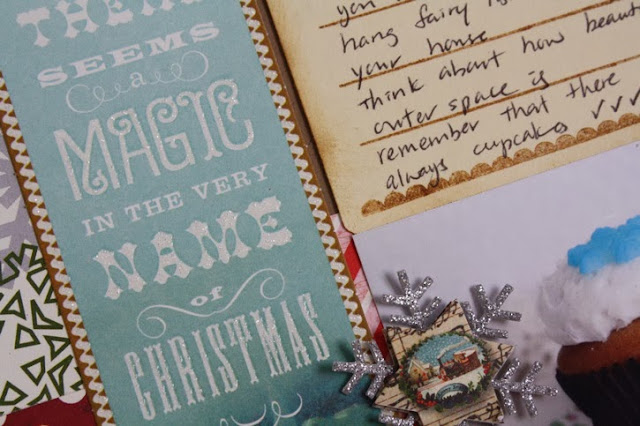 SEEMS
a
MAGIC
IN THE VERY
NAME
of
CHRISTMAS
you
hang fairy
your house
think about how
outer space is
remember that there
always cupcakes ✓✓✓